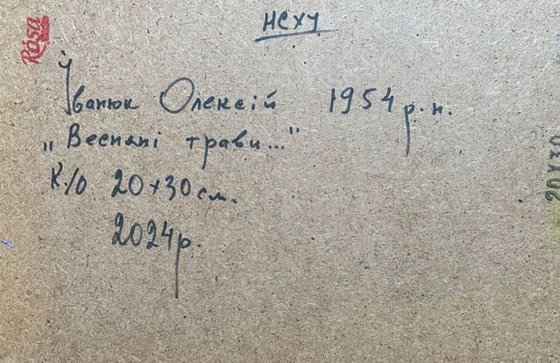 НСХУ
Rosa
Іванюк Олексій 1954 р.н.
„Весняні трави..."
к/о 20х30 см.
2024р.
20X30